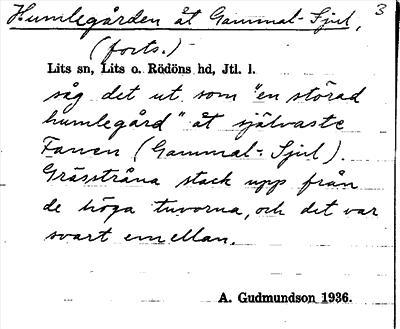 Humlegården åt Gammal-Sjul, 3
(forts.)
Lits sn, Lits o. Rödöns hd, Jtl. l.
såg det ut som "en störad
humlegård" åt självaste
Fanen (Gammal-Sjul).
Grässtråna stack upp från
de höga tuvorna, och det var
svart emellan.
A. Gudmundson 1936.